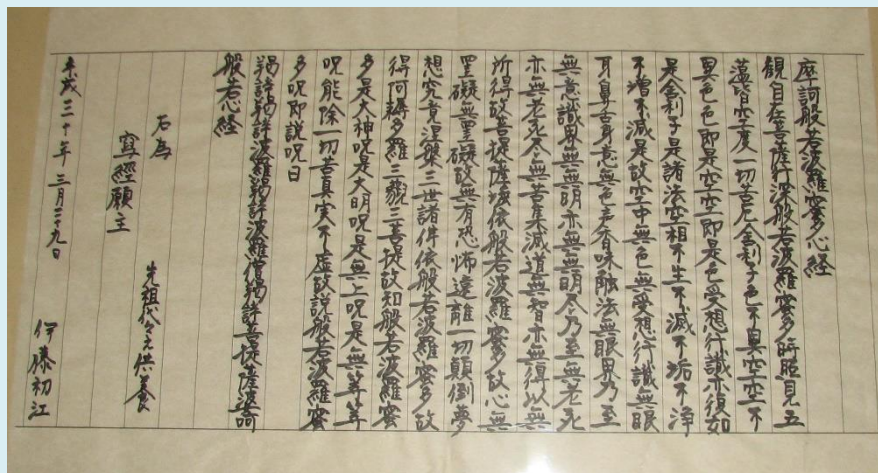 摩訶般若波羅蜜多心経
観自在菩薩行深般若波羅蜜多時照見五
蘊皆空度一切苦厄舎利子色不異空空不
異色色即是空空即是色受想行識亦復如
是舎利子是諸法空相不生不滅不垢不浄
不増不減是故空中無色無受想行識無眼
耳鼻舌身意無色声香味触法無眼界乃至
無意識界無無明亦無無明尽乃至無老死
亦無老死尽無苦集滅道無智亦無得以無
所得故菩提薩埵依般若波羅蜜多故心無
罣礙無罣礙故無有恐怖遠離一切顛倒夢
想究竟涅槃三世諸佛依般若波羅蜜多故
得阿耨多羅三藐三菩提故知般若波羅蜜
多是大神呪是大明呪是無上呪是無等等
呪能除一切苦真実不虚故説般若波羅蜜
多呪即説呪曰
羯諦羯諦波羅羯諦波羅僧羯諦菩提薩婆訶
般若心経
右為 先祖代々之供養
寫經願主
平成三十年 三月二十九日 伊藤初江